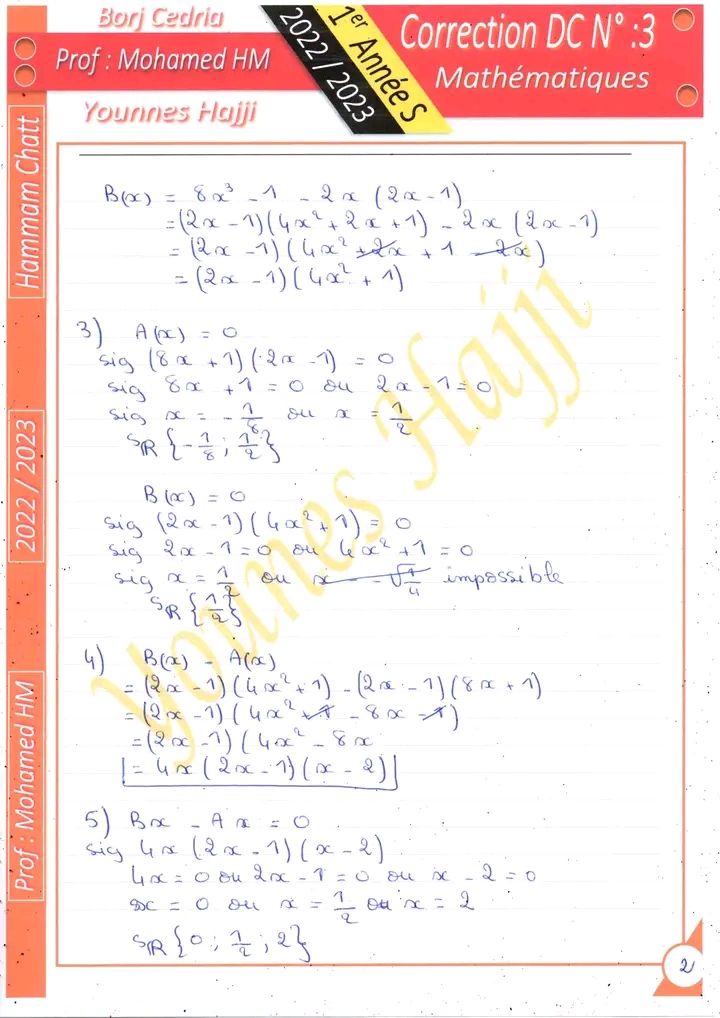 Borj Cedria
Prof : Mohamed HM
Younnes Hajji
2022 / 2023
1er Année S
Correction DC N° :3
Mathématiques
Hammam Chatt
2022 / 2023
Prof : Mohamed HM
Younes Hajji
B(x) = 8x³ - 1 - 2x (2x-1)
=(2x-1)(4x²+2x+1) - 2x (2x-1)
= (2x-1)(4x²+2x+1-2x)
= (2x-1)(4x²+1)
3) A(x) = 0
sig (8x+1)(2x-1) = 0
sig 8x+1=0 ou 2x-1=0
sig x = -1/8 ou x = 1/2
SR {-1/8 ; 1/2}
B(x) = 0
sig (2x-1)(4x²+1) = 0
sig 2x-1=0 ou 4x²+1=0
sig x = 1/2 ou x = -√1/4 impossible
SR {1/2}
4) B(x) - A(x)
= (2x-1)(4x²+1) - (2x-1)(8x+1)
= (2x-1)(4x²+1-8x-1)
=(2x-1)(4x²-8x
= 4x(2x-1)(x-2)
5) Bx - Ax = 0
sig 4x(2x-1)(x-2)
4x=0 ou 2x-1=0 ou x-2=0
x = 0 ou x = 1/2 ou x = 2
SR {0 ; 1/2 ; 2}
2